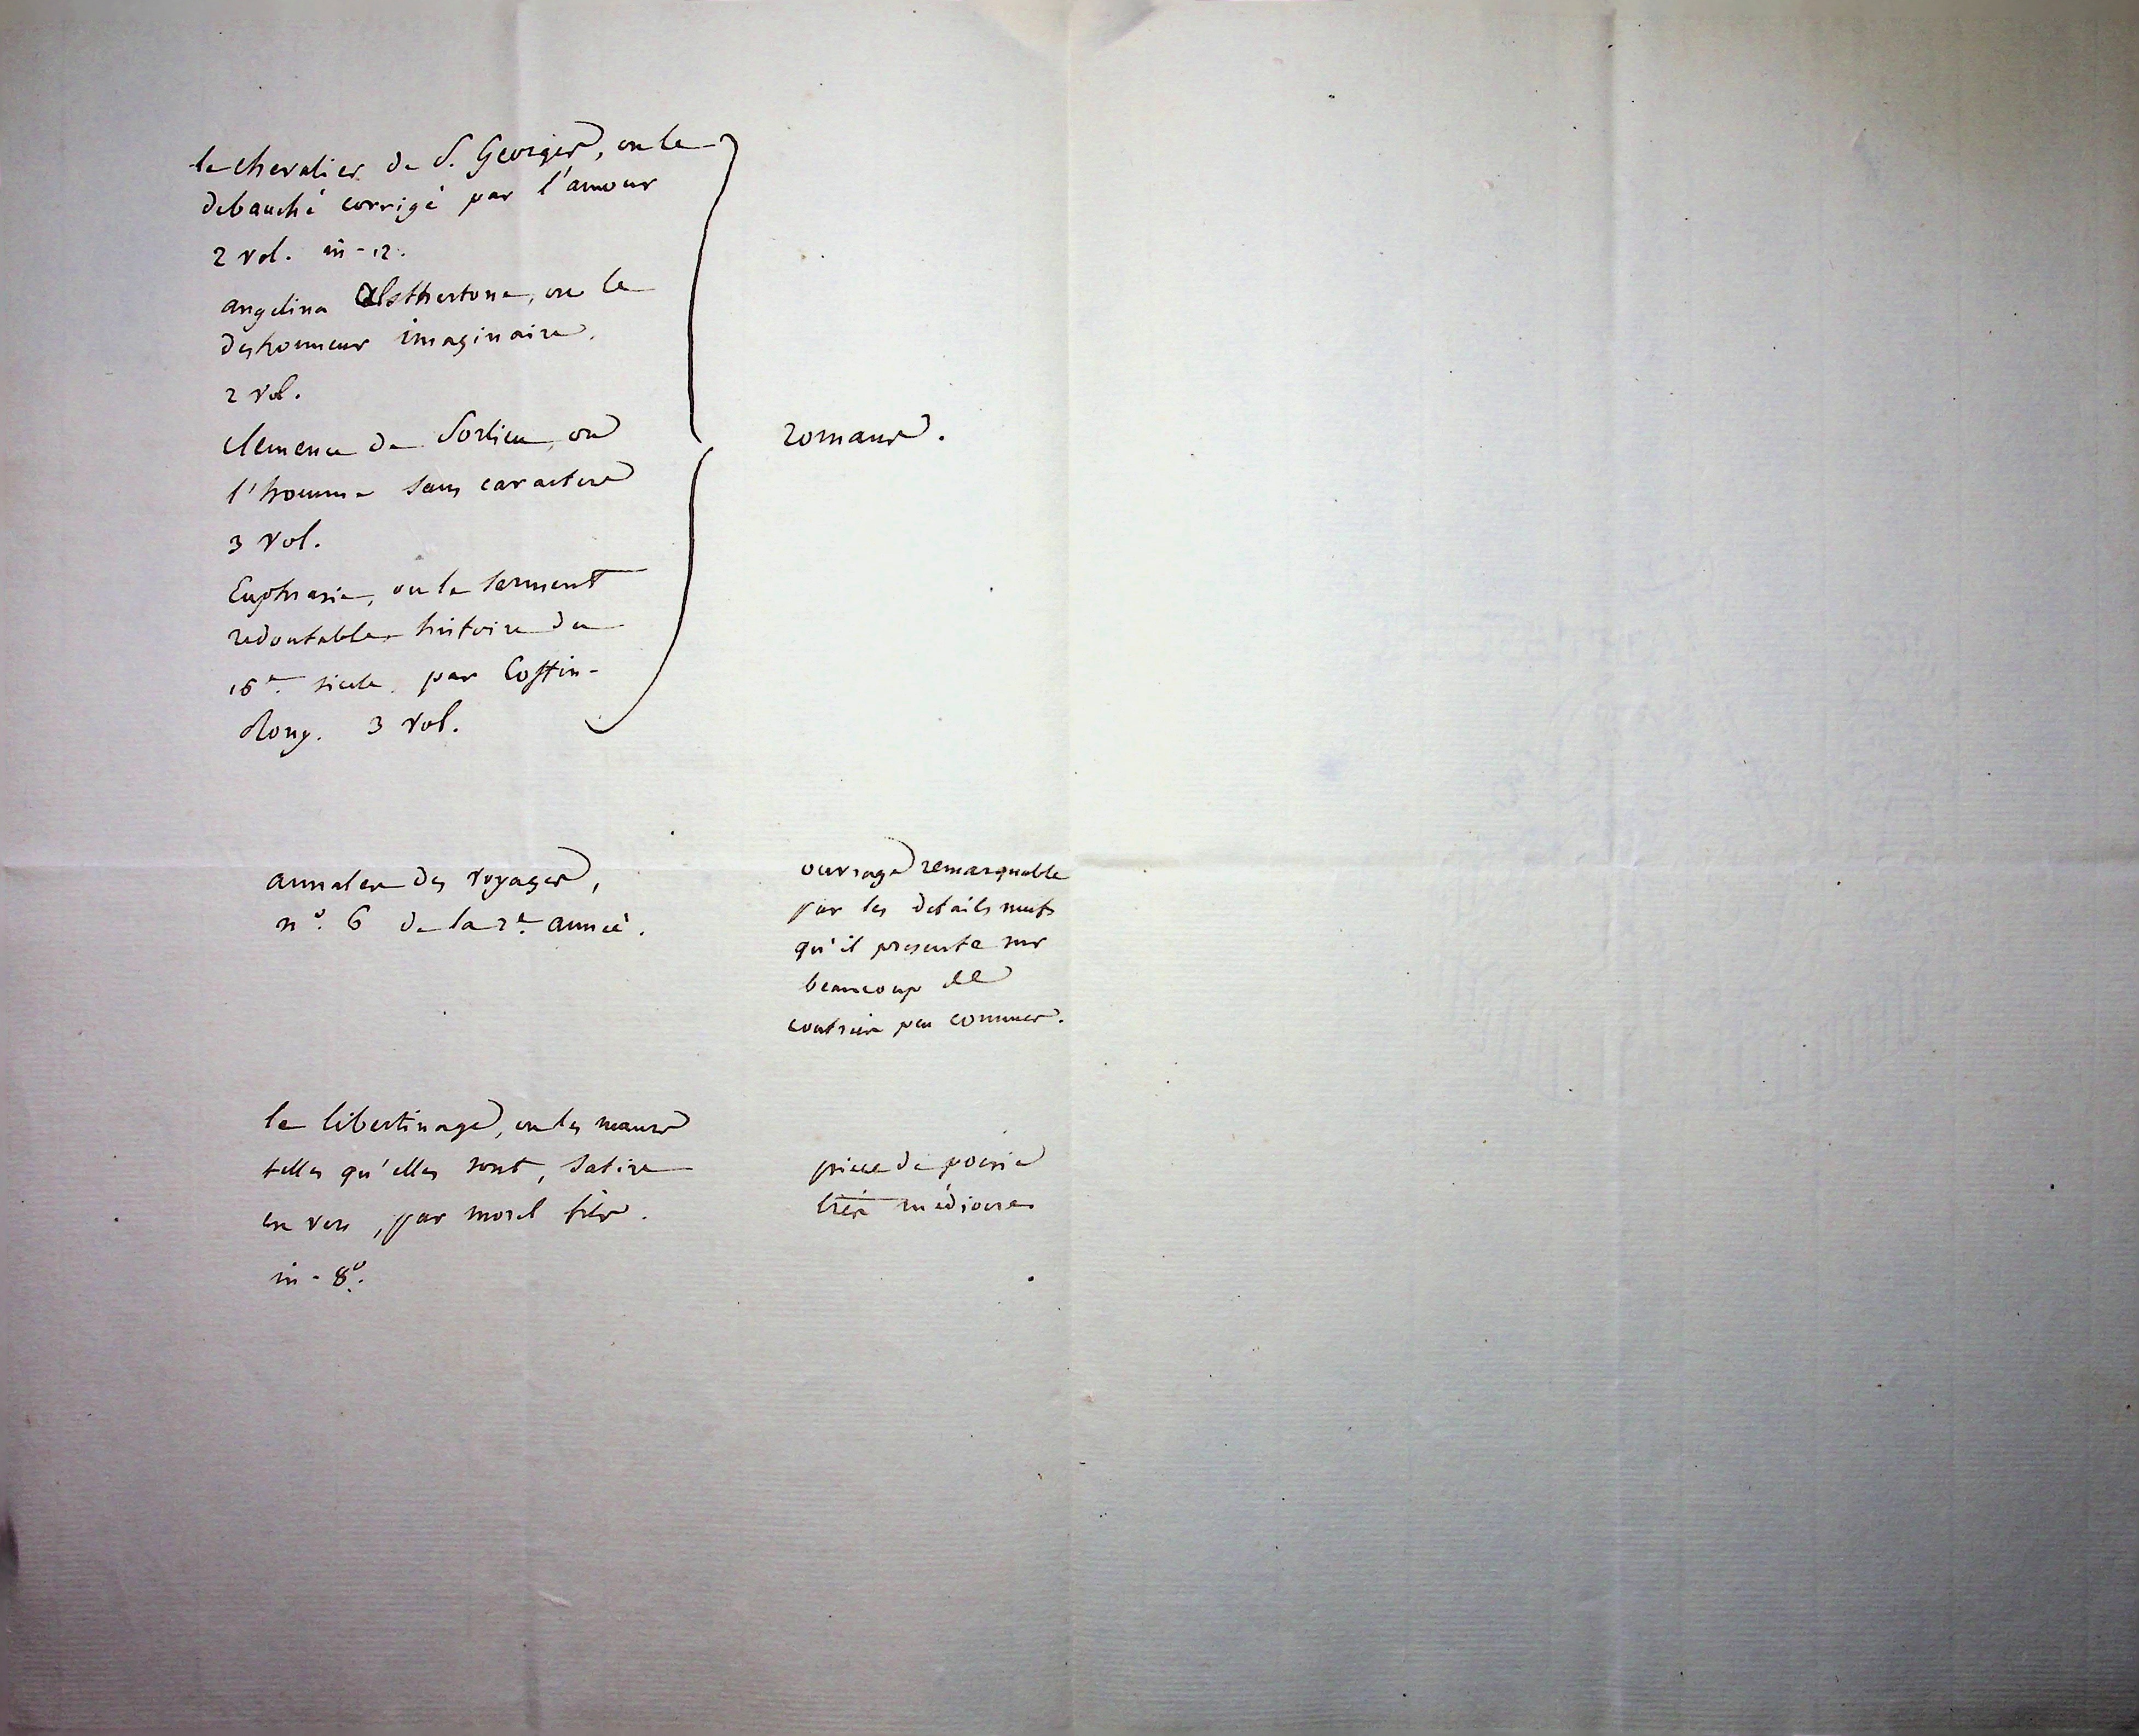 le chevalier de S. Georges, ou le
debauché corrigé par l'amour
2 vol. in-12.
angelina Alsthertone, ou le
deshonneur imaginaire.
2 vol.
clemence de Sorlieu, ou
l'homme sans caractere
3 vol.
romans.
Euphrasie, ou le serment
redoutable histoire du
16e. siecle. par Coffin-
Rony. 3 vol.
annales des voyages,
n°. 6 de la 2e. année.
ouvrage remarquable
par les details neufs
qu'il presente sur
beaucoup de
contrées peu connues.
le libertinage, ou les mœurs
telles qu'elles sont, satire
en vers, par morel fils.
in-8°.
piece de poesie
très médiocre